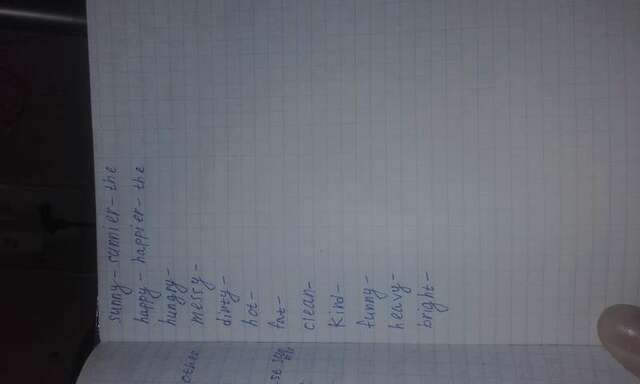 sunny - sunnier - the
happy - happier - the
hungry -
messy -
dirty -
hot -
fat -
clean -
Kind -
funny -
heavy -
bright -
other